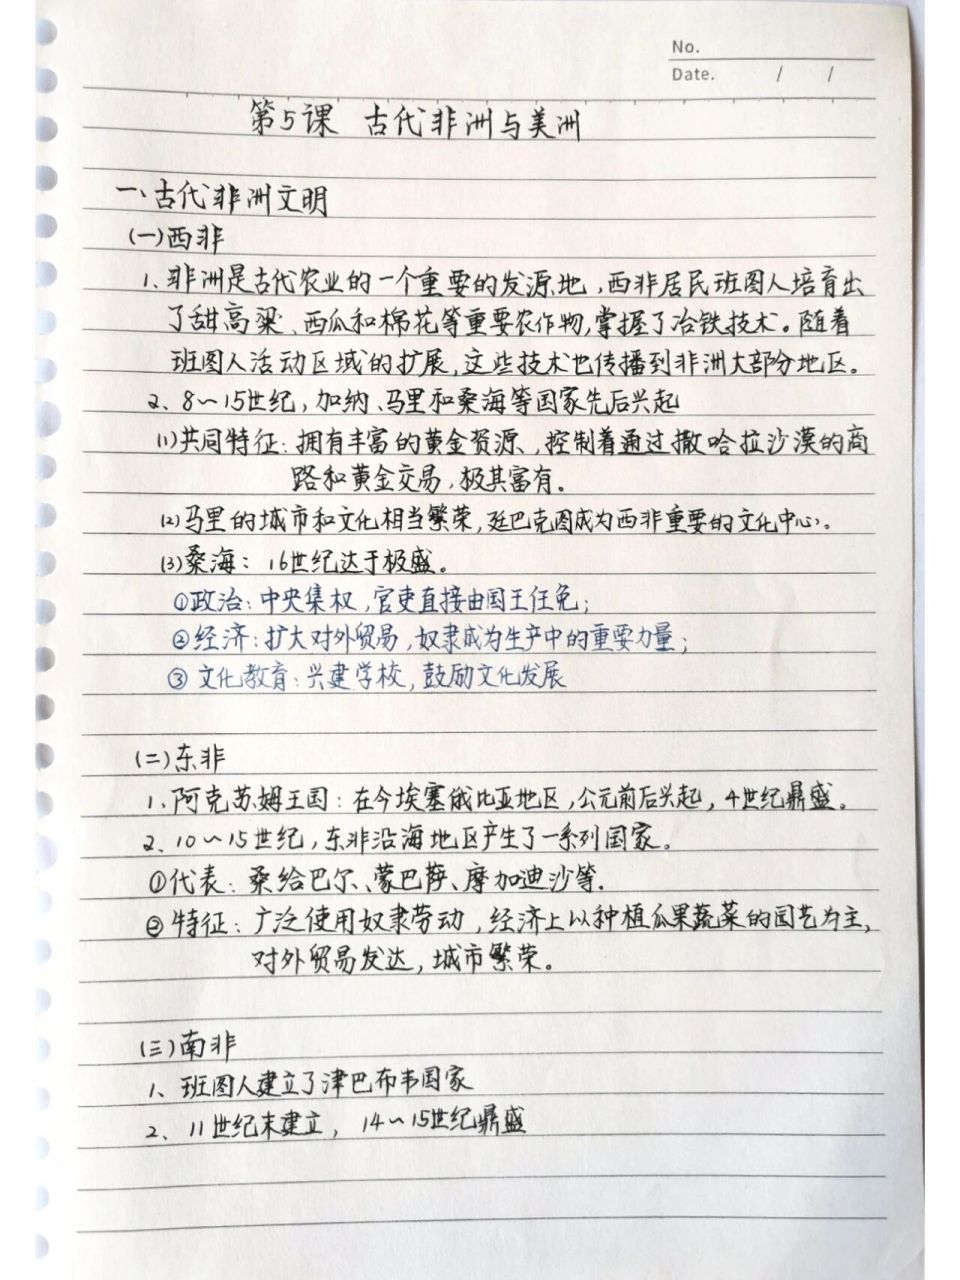 No.
Date. / /
第5课 古代非洲与美洲
一、古代非洲文明
(一)西非
1、非洲是古代农业的一个重要的发源地,西非居民班图人培育出
了甜高粱、西瓜和棉花等重要农作物,掌握了冶铁技术。随着
班图人活动区域的扩展,这些技术也传播到非洲大部分地区。
2、8~15世纪,加纳、马里和桑海等国家先后兴起
(1)共同特征:拥有丰富的黄金资源,控制着通过撒哈拉沙漠的商
路和黄金交易,极其富有。
(2)马里的城市和文化相当繁荣,廷巴克图成为西非重要的文化中心。
(3)桑海:16世纪达于极盛。
①政治:中央集权,官吏直接由国王任免;
②经济:扩大对外贸易,奴隶成为生产中的重要力量;
③文化教育:兴建学校,鼓励文化发展
(二)东非
1、阿克苏姆王国:在今埃塞俄比亚地区,公元前后兴起,4世纪鼎盛。
2、10~15世纪,东非沿海地区产生了一系列国家。
①代表:桑给巴尔、蒙巴萨、摩加迪沙等.
②特征:广泛使用奴隶劳动,经济上以种植瓜果蔬菜的园艺为主,
对外贸易发达,城市繁荣。
(三)南非
1、班图人建立了津巴布韦国家
2、11世纪末建立,14~15世纪鼎盛